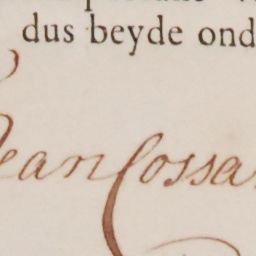 dus beyde ond
Jean Cossa